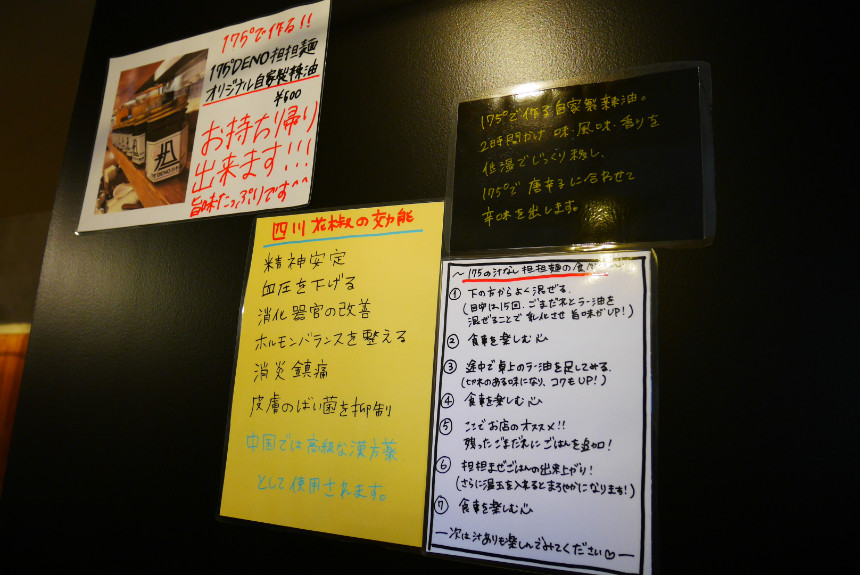 175°で作る!!
175°DENO担担麺
オリジナル自家製辣油
¥600
お持ち帰り
出来ます!!!
旨味たっぷりです^^
175°で作る自家製辣油。
2時間かけ 味・風味・香りを
低温でじっくり移し、
175°で 唐辛子に合わせて
辛味を出します。
四川花椒の効能
精神安定
血圧を下げる
消化器官の改善
ホルモンバランスを整える
消炎鎮痛
皮膚のばい菌を抑制
中国では高級な漢方薬
として使用されます。
〜175の汁なし担担麺の食
① 下の方からよく混ぜる.
(目安は15回.ごまだれとラー油を
混ぜることで乳化させ 旨味がUP!)
② 食事を楽しむ心
③ 途中で卓上のラー油を足してみる.
(切れのある味になり、コクもUP!)
④ 食事を楽しむ心
⑤ ここでお店のオススメ!!
残ったごまだれにごはんを追加!
⑥ 担担まぜごはんの出来上がり!
(さらに温玉を入れるとまろやかになります!)
⑦ 食事を楽しむ心
―次は汁ありも楽しんでみてください♡―